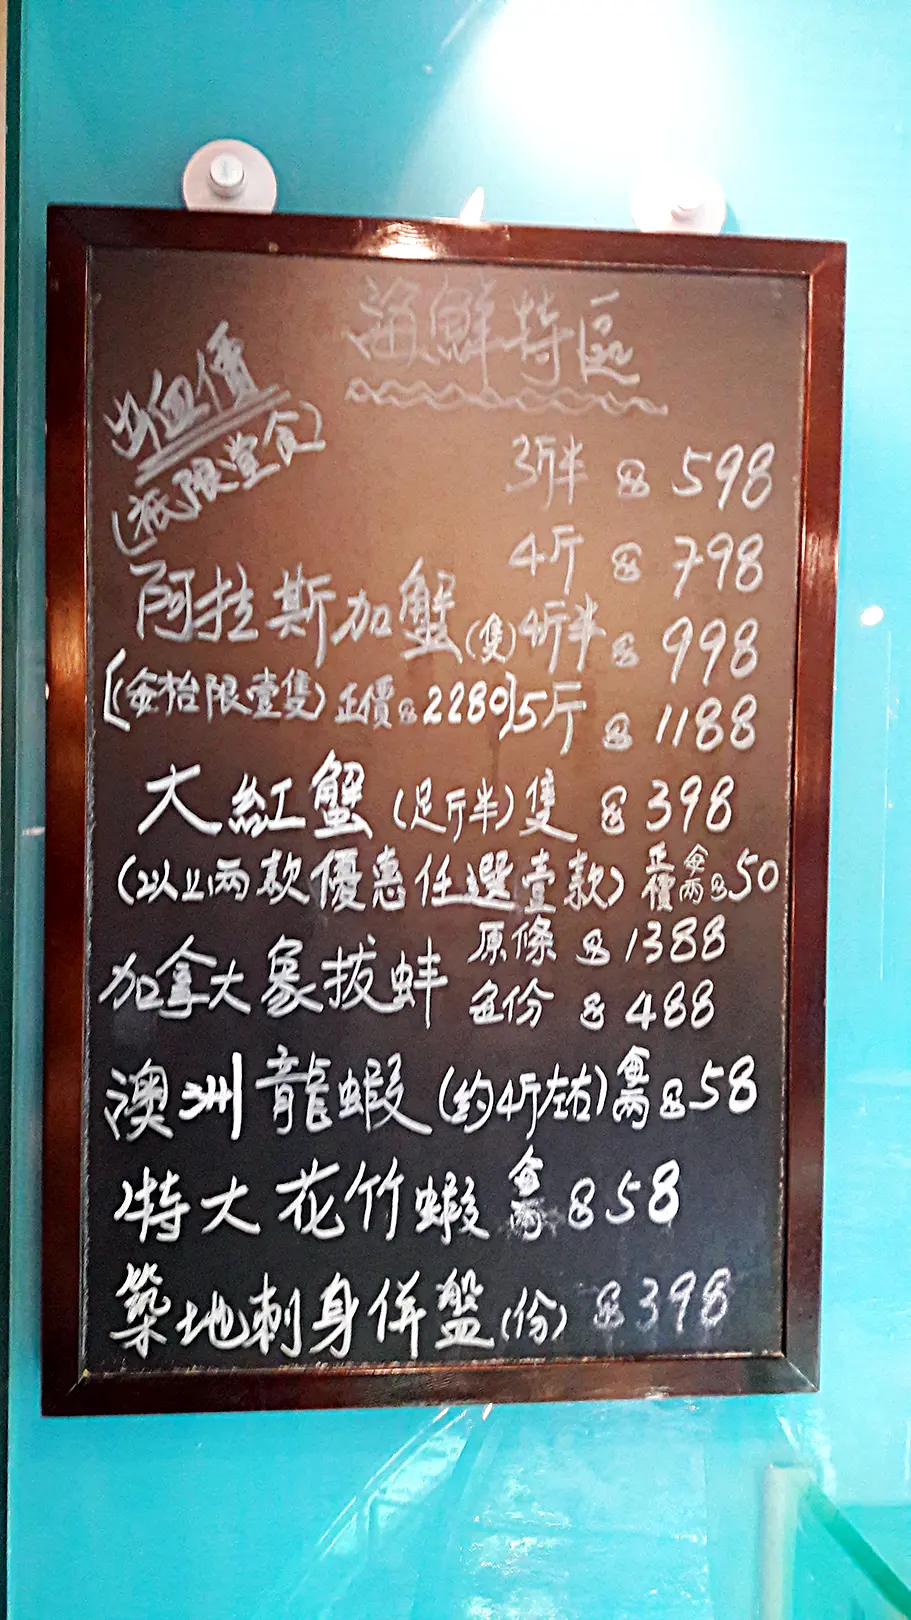 海鮮特區
出血價
(祇限堂食)
3斤半 $598
4斤 $798
阿拉斯加蟹(隻)
4斤半 $998
[(每枱限壹隻) 正價$2280]
5斤 $1188
大紅蟹(足斤半)隻 $398
(以上兩款優惠任選壹款) 正價每兩$50
加拿大象拔蚌
原條 $1388
每份 $488
澳洲龍蝦(約4斤左右)每兩$58
特大花竹蝦 每兩 $58
築地刺身併盤(份) $398